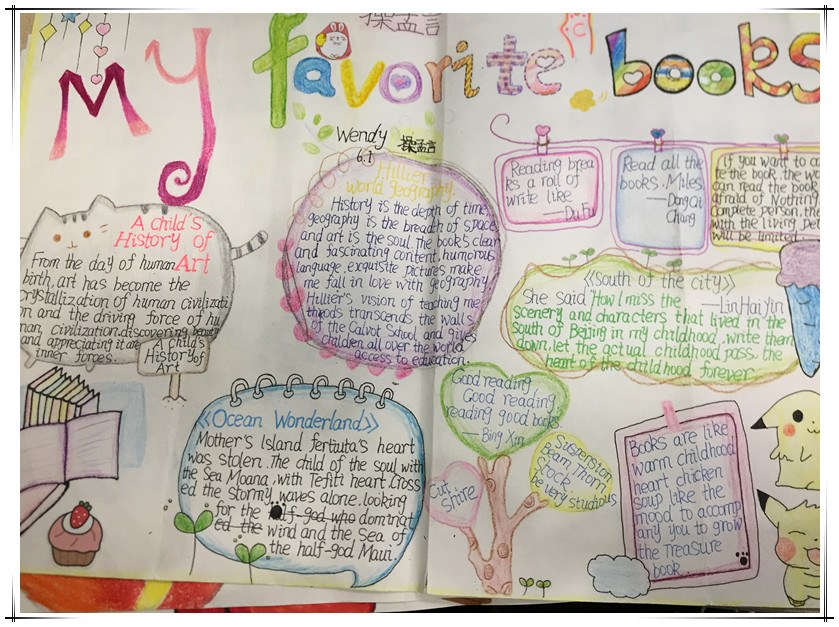 My favorite books
操孟言
Wendy
操孟言
6.1
A child's
History of
Art
From the day of human
birth, art has become the
crystallization of human civilizati
on and the driving force of hu
man, civilization.discovering beauty
and appreciating it are
inner forces.
A child's
History of
Art
Hillier
world geography
History is the depth of time,
geography is the breadth of space
and art is the soul. The book's clear
and fascinating content, humorous
language, exquisite pictures make
me fall in love with geography
Hillier's vision of teaching me
thods transcends the walls
of the Calvot School and gives
children all over the world
access to education.
Reading brea
ks a roll of
write like
—Du Fu
Read all the
books .Miles
—Dong Qi
Chang
If you want to
te the book, the
can read the book
afraid of Nothing
complete person, the
with the living
will be limited.
《South of the city》
—Lin Hai Yin
She said "How I miss the
scenery and characters that lived in the
south of Beijing in my childhood .write them
down, let the actual childhood pass, the
heart of the childhood forever
《Ocean Wonderland》
Mother's Island fertiuta's heart
was stolen. The child of the soul with
the Sea Moana, with Tefiti heart Cross
ed the stormy waves alone. looking
for the half-god who dominat
ed the wind and the sea of
the half-god Maui.
Good reading,
Good reading,
reading good books.
—Bing Xin
Cut
Shire
Suspension
Beam, Thorn
Stock,
be very studious
Books are like
warm childhood
heart chicken
soup like the
mood to accomp
any you to grow
the treasure
book.